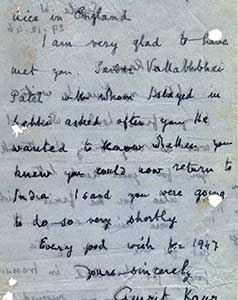 nice in England
I am very glad to have
met you. Sardar Vallabhbhai
Patel with whom I stayed in
asked after you. He
wanted to know whether you
knew you could now return to
India. I said you were going
to do so very shortly
Every good wish for 1947
Yours sincerely
Amrit Kaur